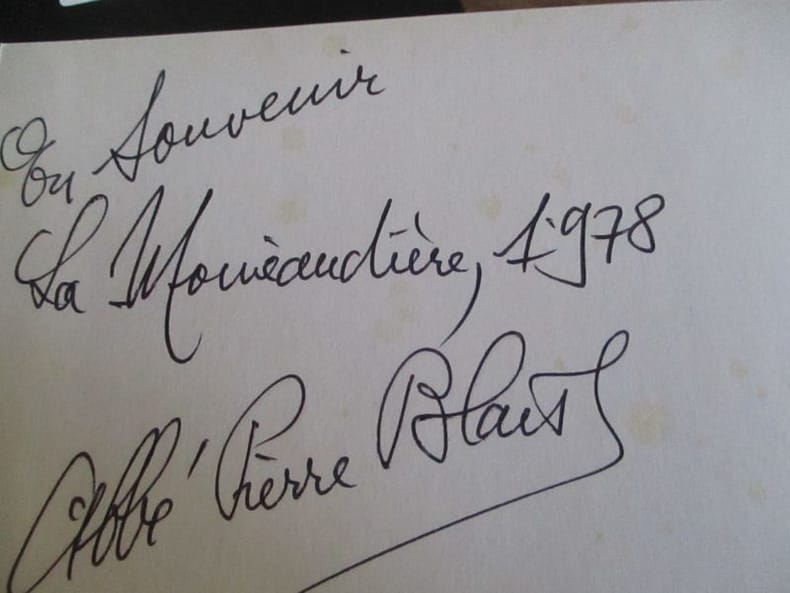 En Souvenir
La Moinèaudière, 1978
Abbé Pierre